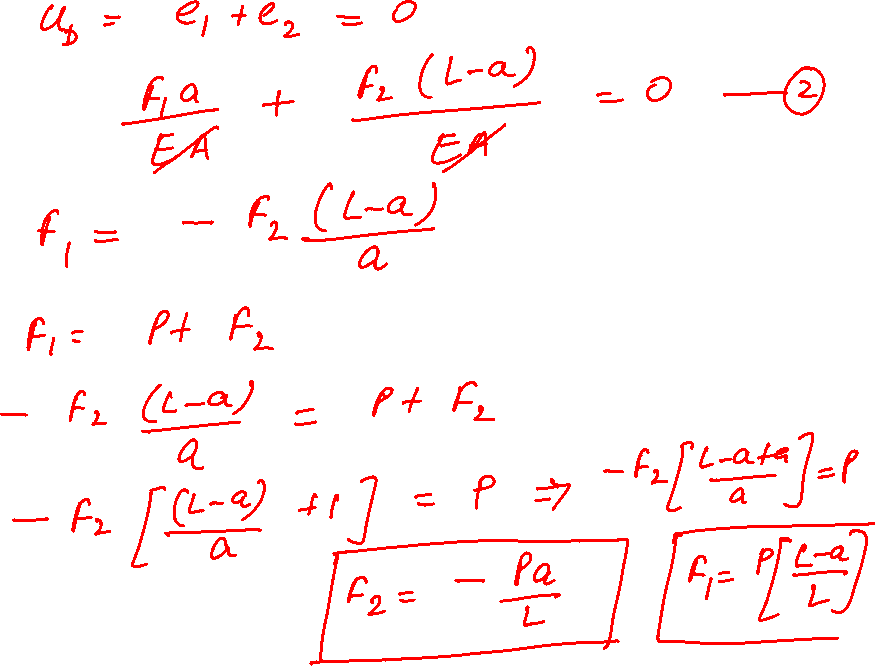 u_D = e_1 + e_2 = 0
F_1 a / EA + F_2 (L-a) / EA = 0 — ②
F_1 = - F_2 (L-a) / a
F_1 = P + F_2
- F_2 (L-a) / a = P + F_2
- F_2 [(L-a) / a + 1] = P ⇒ -F_2 [L-a+a / a] = P
F_2 = - Pa / L F_1 = P [L-a / L]